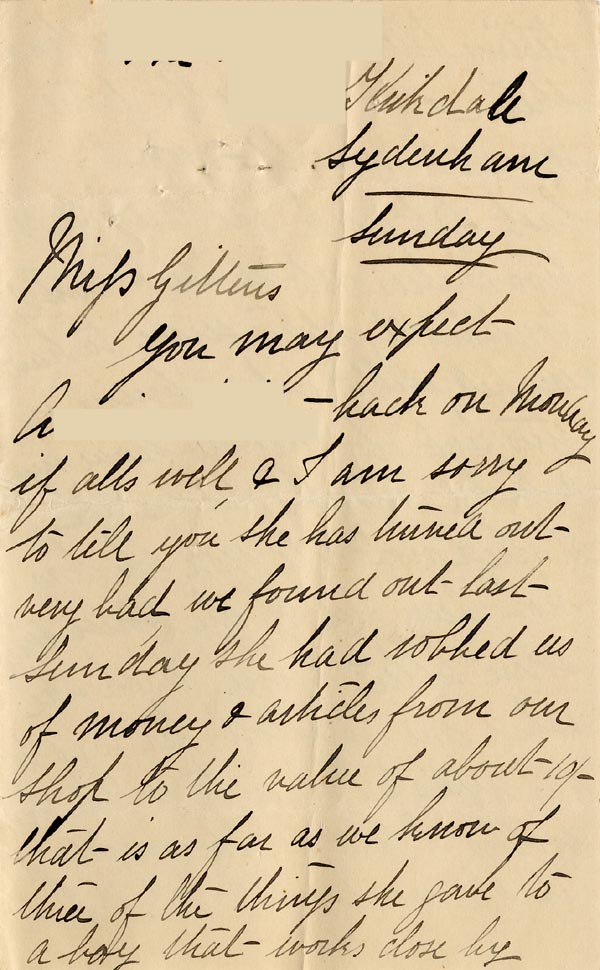 Kirkdale
Sydenham
Sunday
Miss Gittens
You may expect
A - back on Monday
if alls well & I am sorry
to tell you she has turned out
very bad we found out last
Sunday she had robbed us
of money & articles from our
shop to the value of about 10/-
that is as far as we know of
three of the things she gave to
a boy that works close by